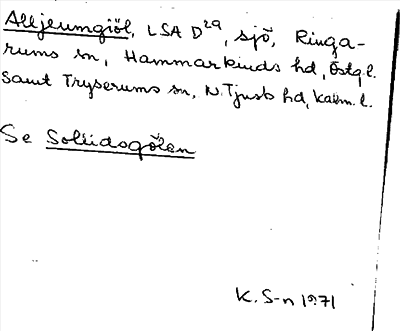 Alljeumgiöl, LSA D29, sjö, Ringa-
rums sn, Hammarkinds hd, Östg.l.
samt Tryserums sn, N. Tjusts hd, Kalm. l.
Se Solludsgölen
K. S-n 1971